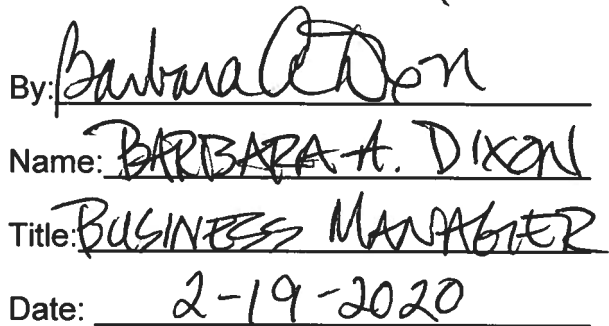 By: Barbara A Dixon
Name: BARBARA A. DIXON
Title: BUSINESS MANAGER
Date: 2-19-2020